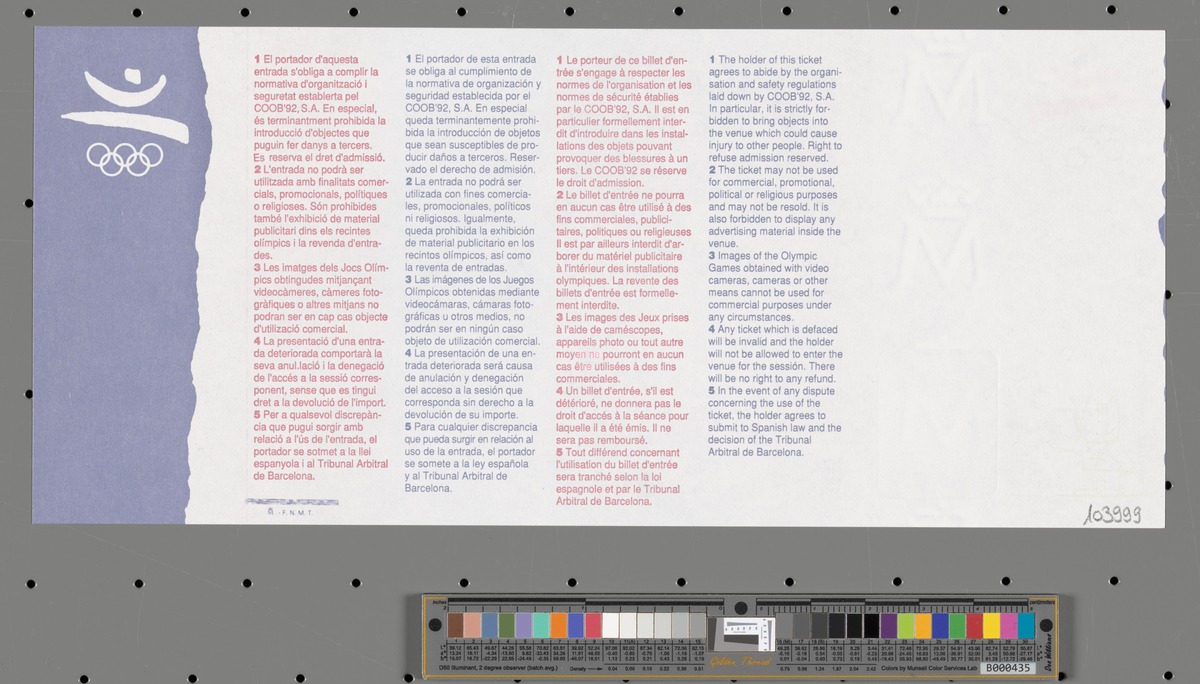 1 El portador d'aquesta
entrada s'obliga a complir la
normativa d'organització i
seguretat establerta pel
COOB'92, S.A. En especial,
és terminantment prohibida la
introducció d'objectes que
puguin fer danys a tercers.
Es reserva el dret d'admissió.
2 L'entrada no podrà ser
utilitzada amb finalitats comer-
cials, promocionals, polítiques
o religioses. Són prohibides
també l'exhibició de material
publicitari dins els recintes
olímpics i la revenda d'entra-
des.
3 Les imatges dels Jocs Olím-
pics obtingudes mitjançant
videocàmeres, càmeres foto-
gràfiques o altres mitjans no
podran ser en cap cas objecte
d'utilizació comercial.
4 La presentació d'una entra-
da deteriorada comportarà la
seva anul.lació i la denegació
de l'accés a la sessió corres-
ponent, sense que es tingui
dret a la devolució de l'import.
5 Per a qualsevol discrepàn-
cia que pugui sorgir amb
relació a l'ús de l'entrada, el
portador se sotmet a la llei
espanyola i al Tribunal Arbitral
de Barcelona.
F.N.M.T.
1 El portador de esta entrada
se obliga al cumplimiento de
la normativa de organización y
seguridad establecida por el
COOB'92, S.A. En especial
queda terminantemente prohi-
bida la introducción de objetos
que sean susceptibles de pro-
ducir daños a terceros. Reser-
vado el derecho de admisión.
2 La entrada no podrá ser
utilizada con fines comercia-
les, promocionales, políticos
ni religiosos. Igualmente,
queda prohibida la exhibición
de material publicitario en los
recintos olímpicos, así como
la reventa de entradas.
3 Las imágenes de los Juegos
Olímpicos obtenidas mediante
videocámaras, cámaras foto-
gráficas u otros medios, no
podrán ser en ningún caso
objeto de utilización comercial.
4 La presentación de una en-
trada deteriorada será causa
de anulación y denegación
del acceso a la sesión que
corresponda sin derecho a la
devolución de su importe.
5 Para cualquier discrepancia
que pueda surgir en relación al
uso de la entrada, el portador
se somete a la ley española
y al Tribunal Arbitral de
Barcelona.
1 Le porteur de ce billet d'en-
trée s'engage à respecter les
normes de l'organisation et les
normes de sécurité établies
par le COOB'92, S.A. Il est en
particulier formellement inter-
dit d'introduire dans les instal-
lations des objets pouvant
provoquer des blessures à un
tiers. Le COOB'92 se réserve
le droit d'admission.
2 Le billet d'entrée ne pourra
en aucun cas être utilisé à des
fins commerciales, publici-
taires, politiques ou religieuses
Il est par ailleurs interdit d'ar-
borer du matériel publicitaire
à l'intérieur des installations
olympiques. La revente des
billets d'entrée est formelle-
ment interdite.
3 Les images des Jeux prises
à l'aide de caméscopes,
appareils photo ou tout autre
moyen ne pourront en aucun
cas être utilisées à des fins
commerciales.
4 Un billet d'entrée, s'il est
détérioré, ne donnera pas le
droit d'accés à la séance pour
laquelle il a été émis. Il ne
sera pas remboursé.
5 Tout différend concernant
l'utilisation du billet d'entrée
sera tranché selon la loi
espagnole et par le Tribunal
Arbitral de Barcelona.
1 The holder of this ticket
agrees to abide by the organi-
sation and safety regulations
laid down by COOB'92, S.A.
In particular, it is strictly for-
bidden to bring objects into
the venue which could cause
injury to other people. Right to
refuse admission reserved.
2 The ticket may not be used
for commercial, promotional,
political or religious purposes
and may not be resold. It is
also forbidden to display any
advertising material inside the
venue.
3 Images of the Olympic
Games obtained with video
cameras, cameras or other
means cannot be used for
commercial purposes under
any circumstances.
4 Any ticket which is defaced
will be invalid and the holder
will not be allowed to enter the
venue for the sessión. There
will be no right to any refund.
5 In the event of any dispute
concerning the use of the
ticket, the holder agrees to
submit to Spanish law and the
decision of the Tribunal
Arbitral de Barcelona.
103999
inches
centimeters
Golden Thread
D50 Illuminant, 2 degree observer
Colors by Munsell Color Services Lab
B000435